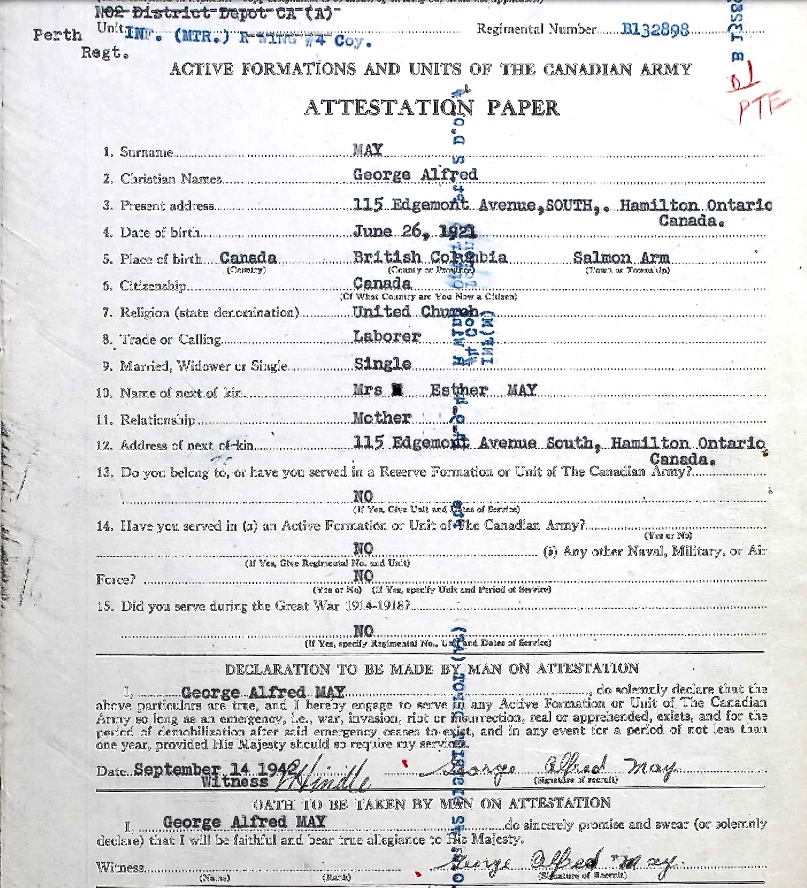 No2 District Depot CA (A)
Unit INF. (MTR.) R WING #4 Coy. Regimental Number B132898
Perth
Regt.
01
PTE
ACTIVE FORMATIONS AND UNITS OF THE CANADIAN ARMY
ATTESTATION PAPER
1. Surname MAY
2. Christian Names George Alfred
3. Present address 115 Edgemont Avenue,SOUTH,. Hamilton Ontario
Canada.
4. Date of birth June 26, 1921
5. Place of birth Canada British Columbia Salmon Arm
(Country) (County or Province) (Town or Township)
6. Citizenship Canada
(Of What Country are You Now a Citizen)
7. Religion (state denomination) United Church
8. Trade or Calling Laborer
9. Married, Widower or Single Single
10. Name of next of kin Mrs Esther MAY
11. Relationship Mother
12. Address of next of kin 115 Edgemont Avenue South, Hamilton Ontario
Canada.
13. Do you belong to, or have you served in a Reserve Formation or Unit of The Canadian Army?
NO
(If Yes, Give Unit and Dates of Service)
14. Have you served in (a) an Active Formation or Unit of The Canadian Army?
(Yes or No)
NO (b) Any other Naval, Military, or Air
(If Yes, Give Regimental No. and Unit)
Force? NO
(Yes or No) (If Yes, specify Unit and Period of Service)
15. Did you serve during the Great War 1914-1918?
NO
(If Yes, specify Regimental No., Unit and Dates of Service)
DECLARATION TO BE MADE BY MAN ON ATTESTATION
I, George Alfred MAY, do solemnly declare that the
above particulars are true, and I hereby engage to serve in any Active Formation or Unit of The Canadian
Army so long as an emergency, i.e., war, invasion, riot or insurrection, real or apprehended, exists, and for the
period of demobilization after said emergency ceases to exist, and in any event for a period of not less than
one year, provided His Majesty should so require my services.
Date September 14 1942 George Alfred May
Witness Hindle (Signature of Recruit)
OATH TO BE TAKEN BY MAN ON ATTESTATION
I, George Alfred MAY do sincerely promise and swear (or solemnly
declare) that I will be faithful and bear true allegiance to His Majesty.
Witness George Alfred May.
(Name) (Rank) (Signature of Recruit)